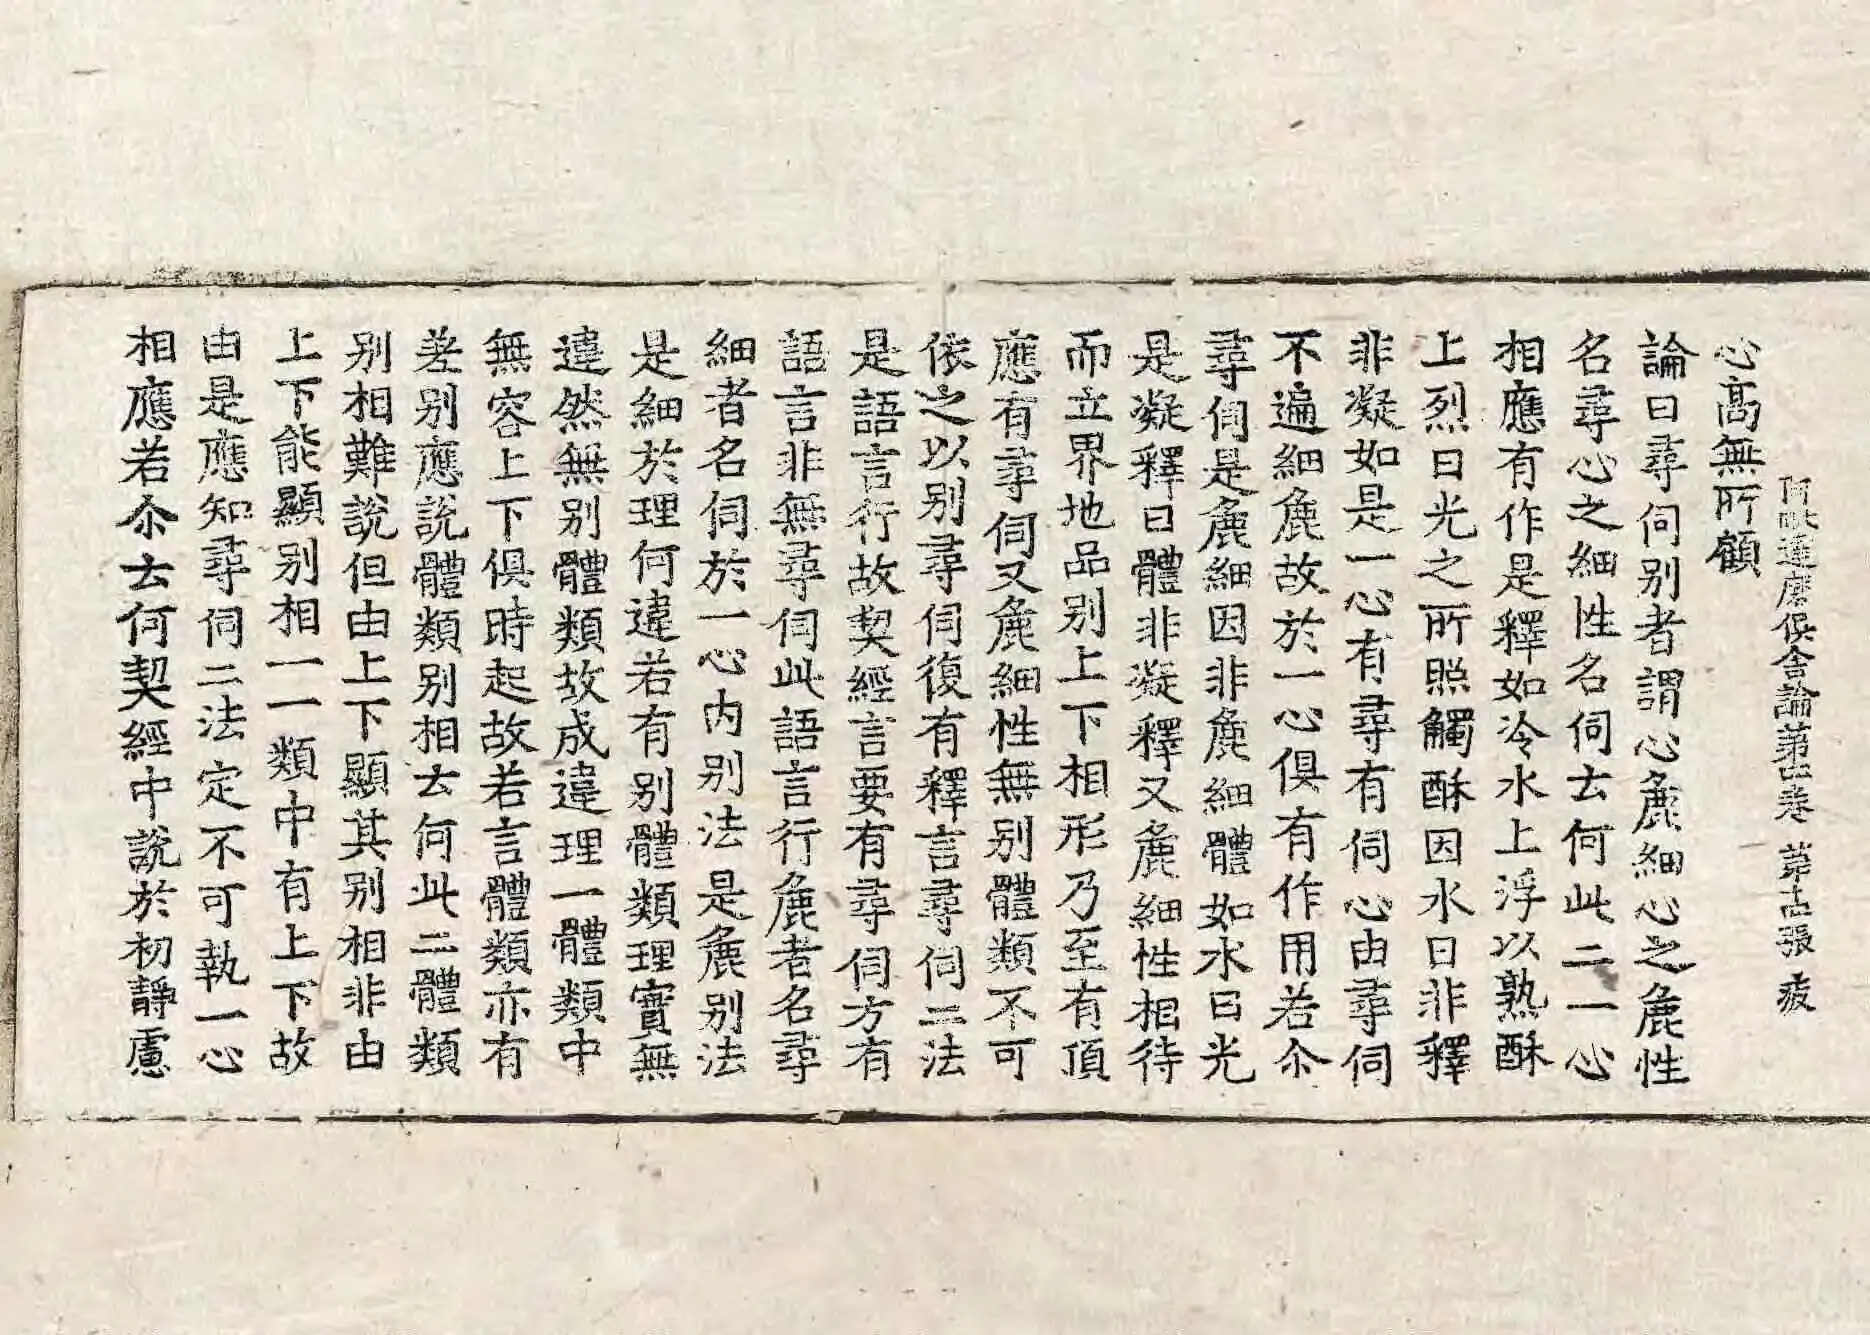 阿毗達磨俱舍論第四卷 第十五張 疲
心高無所顧
論曰尋伺别者謂心麁細心之麁性
名尋心之細性名伺云何此二一心
相應有作是釋如冷水上浮以熟酥
上烈日光之所照觸酥因水日非釋
非凝如是一心有尋有伺心由尋伺
不遍細麁故於一心俱有作用若尒
尋伺是麁細因非麁細體如水日光
是凝釋因體非凝釋又麁細性相待
而立界地品别上下相形乃至有頂
應有尋伺又麁細性無别體類不可
依之以别尋伺復有釋言尋伺二法
是語言行故契經言要有尋伺方有
語言非無尋伺此語言行麁者名尋
細者名伺於一心内别法是麁别法
是細於理何違若有别體類理實無
違然無别體類故成違理一體類中
無容上下俱時起故若言體類亦有
差别應說體類别相云何此二體類
别相難說但由上下顯其别相非由
上下能顯别相一一類中有上下故
由是應知尋伺二法定不可執一心
相應若尒云何契經中說於初靜慮